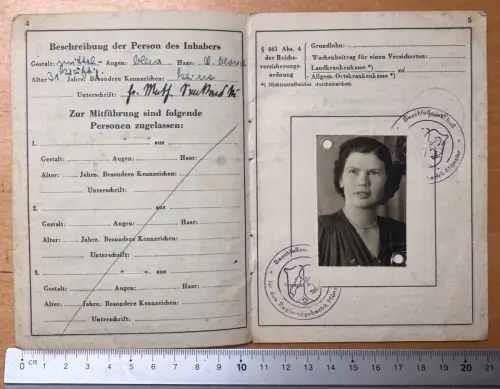 4
Beschreibung der Person des Inhabers
Gestalt: mittel- Augen: blau Haar:
kräftig
Alter 31 Jahre. Besondere Kennzeichen: keine
Unterschrift:
Zur Mitführung sind folgende
Personen zugelassen:
1. aus
Gestalt: Augen: Haar:
Alter: Jahre. Besondere Kennzeichen:
Unterschrift:
2. aus
Gestalt: Augen: Haar:
Alter: Jahre. Besondere Kennzeichen:
Unterschrift:
3. aus
Gestalt: Augen: Haar:
Alter: Jahre. Besondere Kennzeichen:
Unterschrift:
5
§ 461 Abs. 4
der Reichs-
versicherungs-
ordnung
Grundlohn:
Wochenbeitrag für einen Versicherten:
Landkrankenkasse *)
Allgem. Ortskrankenkasse *)
*) Nichtzutreffendes durchstreichen.
0 CM 1 2 3 4 5 6 7 8 9 10 11 12 13 14 15 16 17 18 19 20 21